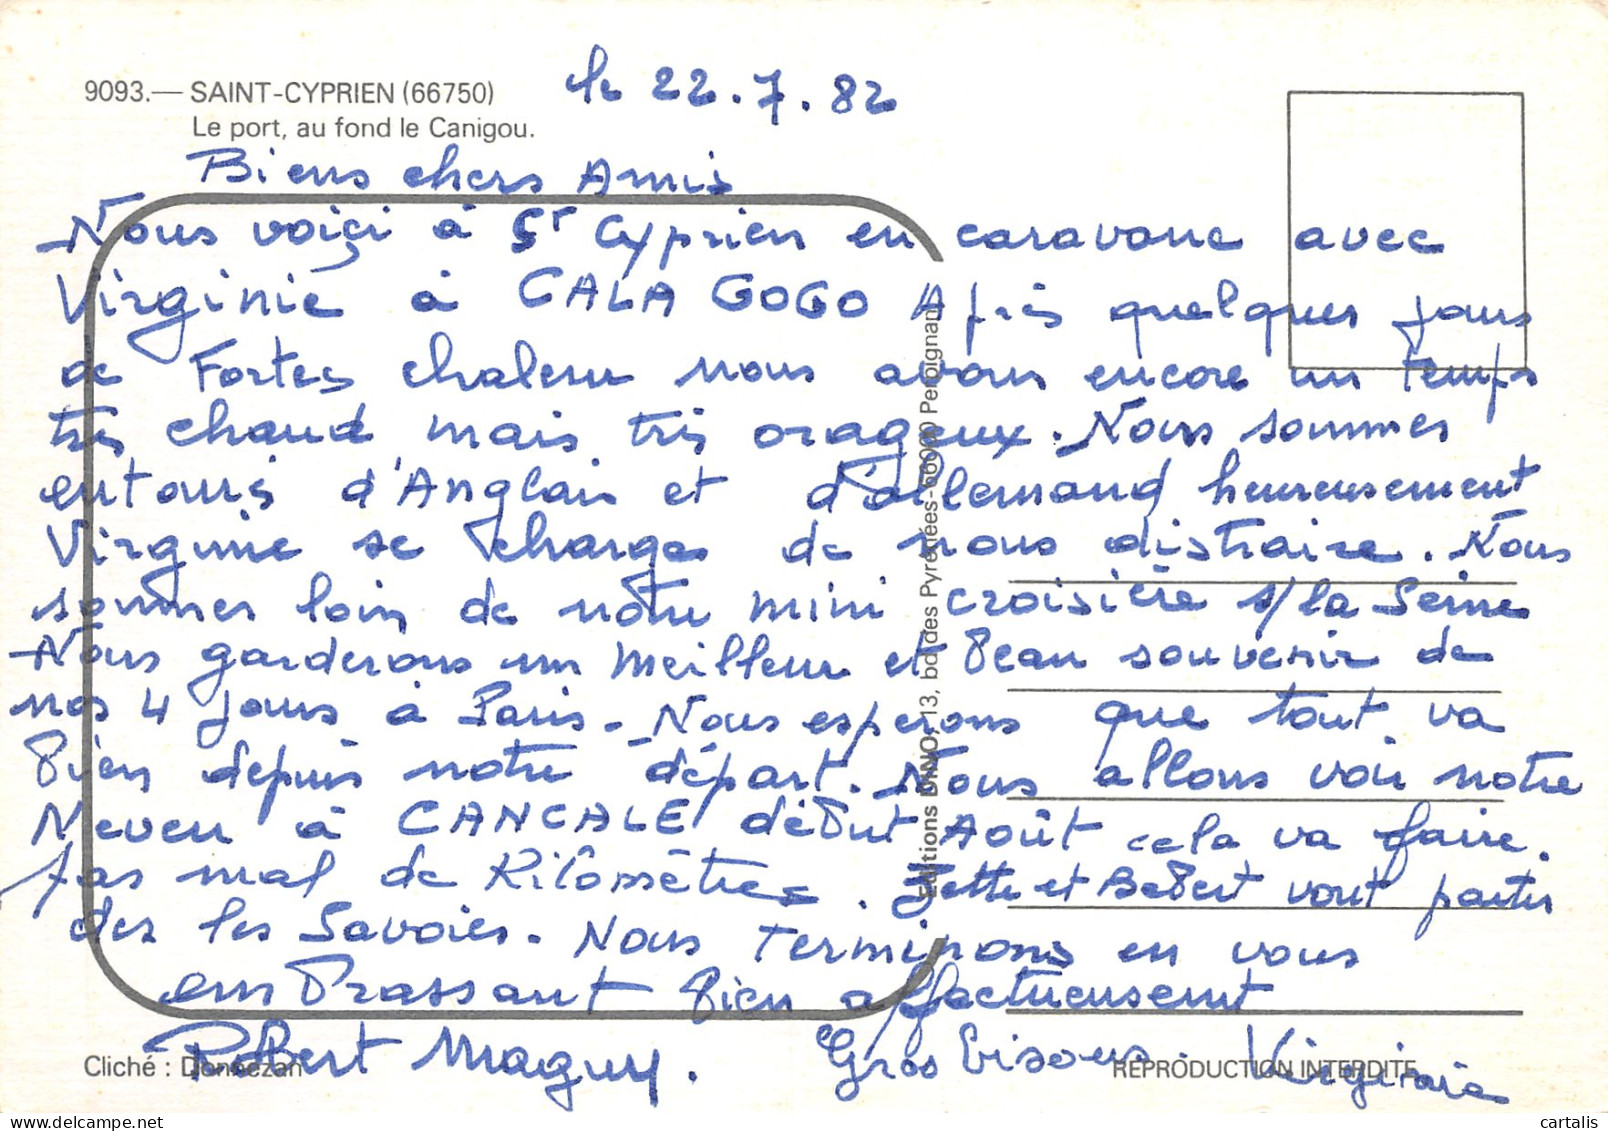 9093.— SAINT-CYPRIEN (66750)
Le port, au fond le Canigou.
le 22.7.82
Biens chers Amis
Nous voiçi à St Cyprien en caravane avec
Virginie à CALA GOGO Après quelques jours
de Fortes chaleur nous avons encore un temps
très chaud mais très orageux. Nous sommes
entourés d'Anglais et d'allemand heureusement
Virginie se charge de nous distraire. Nous
sommes loin de notre mini croisière s/la Seine
Nous garderons un meilleur et Beau souvenir de
nos 4 jours à Paris - Nous esperons que tout va
Bien depuis notre départ. Nous allons voir notre
Neveu à CANCALE déBut Août cela va faire
pas mal de Kilomètres. Jette et BeBert vont partir
des les Savoies. Nous Terminons en vous
emBrassant Bien affectueusement
Robert Maguy. Gros bisous. Virginie
Editions DINO - 13, bd des Pyrénées-66000 Perpignan
Cliché : Donnezan
REPRODUCTION INTERDITE
cartalis